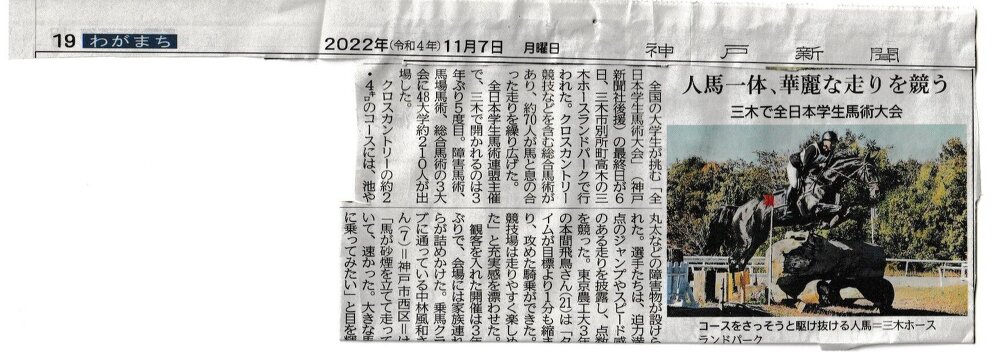 19 わがまち
2022年(令和4年)11月7日 月曜日
神戸新聞
人馬一体、華麗な走りを競う
三木で全日本学生馬術大会
全国の大学生が挑む「全
日本学生馬術大会」(神戸
新聞社後援)の最終日が6
日、三木市別所町高木の三
木ホースランドパークで行
われた。クロスカントリー
競技などを含む総合馬術が
あり、約70人が馬と息の合
った走りを繰り広げた。
全日本学生馬術連盟主催
で、三木で開かれるのは3
年ぶり5度目。障害馬術、
馬場馬術、総合馬術の3大
会に48大学約210人が出
場した。
クロスカントリーの約2
・4㌔のコースには、池や
丸太などの障害物が設けら
れた。選手たちは、迫力満
点のジャンプやスピード感
のある走りを披露し、点数
を競った。東京農工大3年
の本間飛鳥さん(21)は「タ
イムが目標より1分も縮ま
り、攻めた騎乗ができた。
競技場は走りやすく楽しめ
た」と充実感を漂わせた。
観客を入れた開催は3年
ぶりで、会場には家族連れ
らが詰めかけた。乗馬クラ
ブに通っている中林風和さ
ん(7)=神戸市西区=は
「馬が砂煙を立てて走って
いて、速かった。大きな馬
に乗ってみたい」と目を輝
コースをさっそうと駆け抜ける人馬=三木ホース
ランドパーク